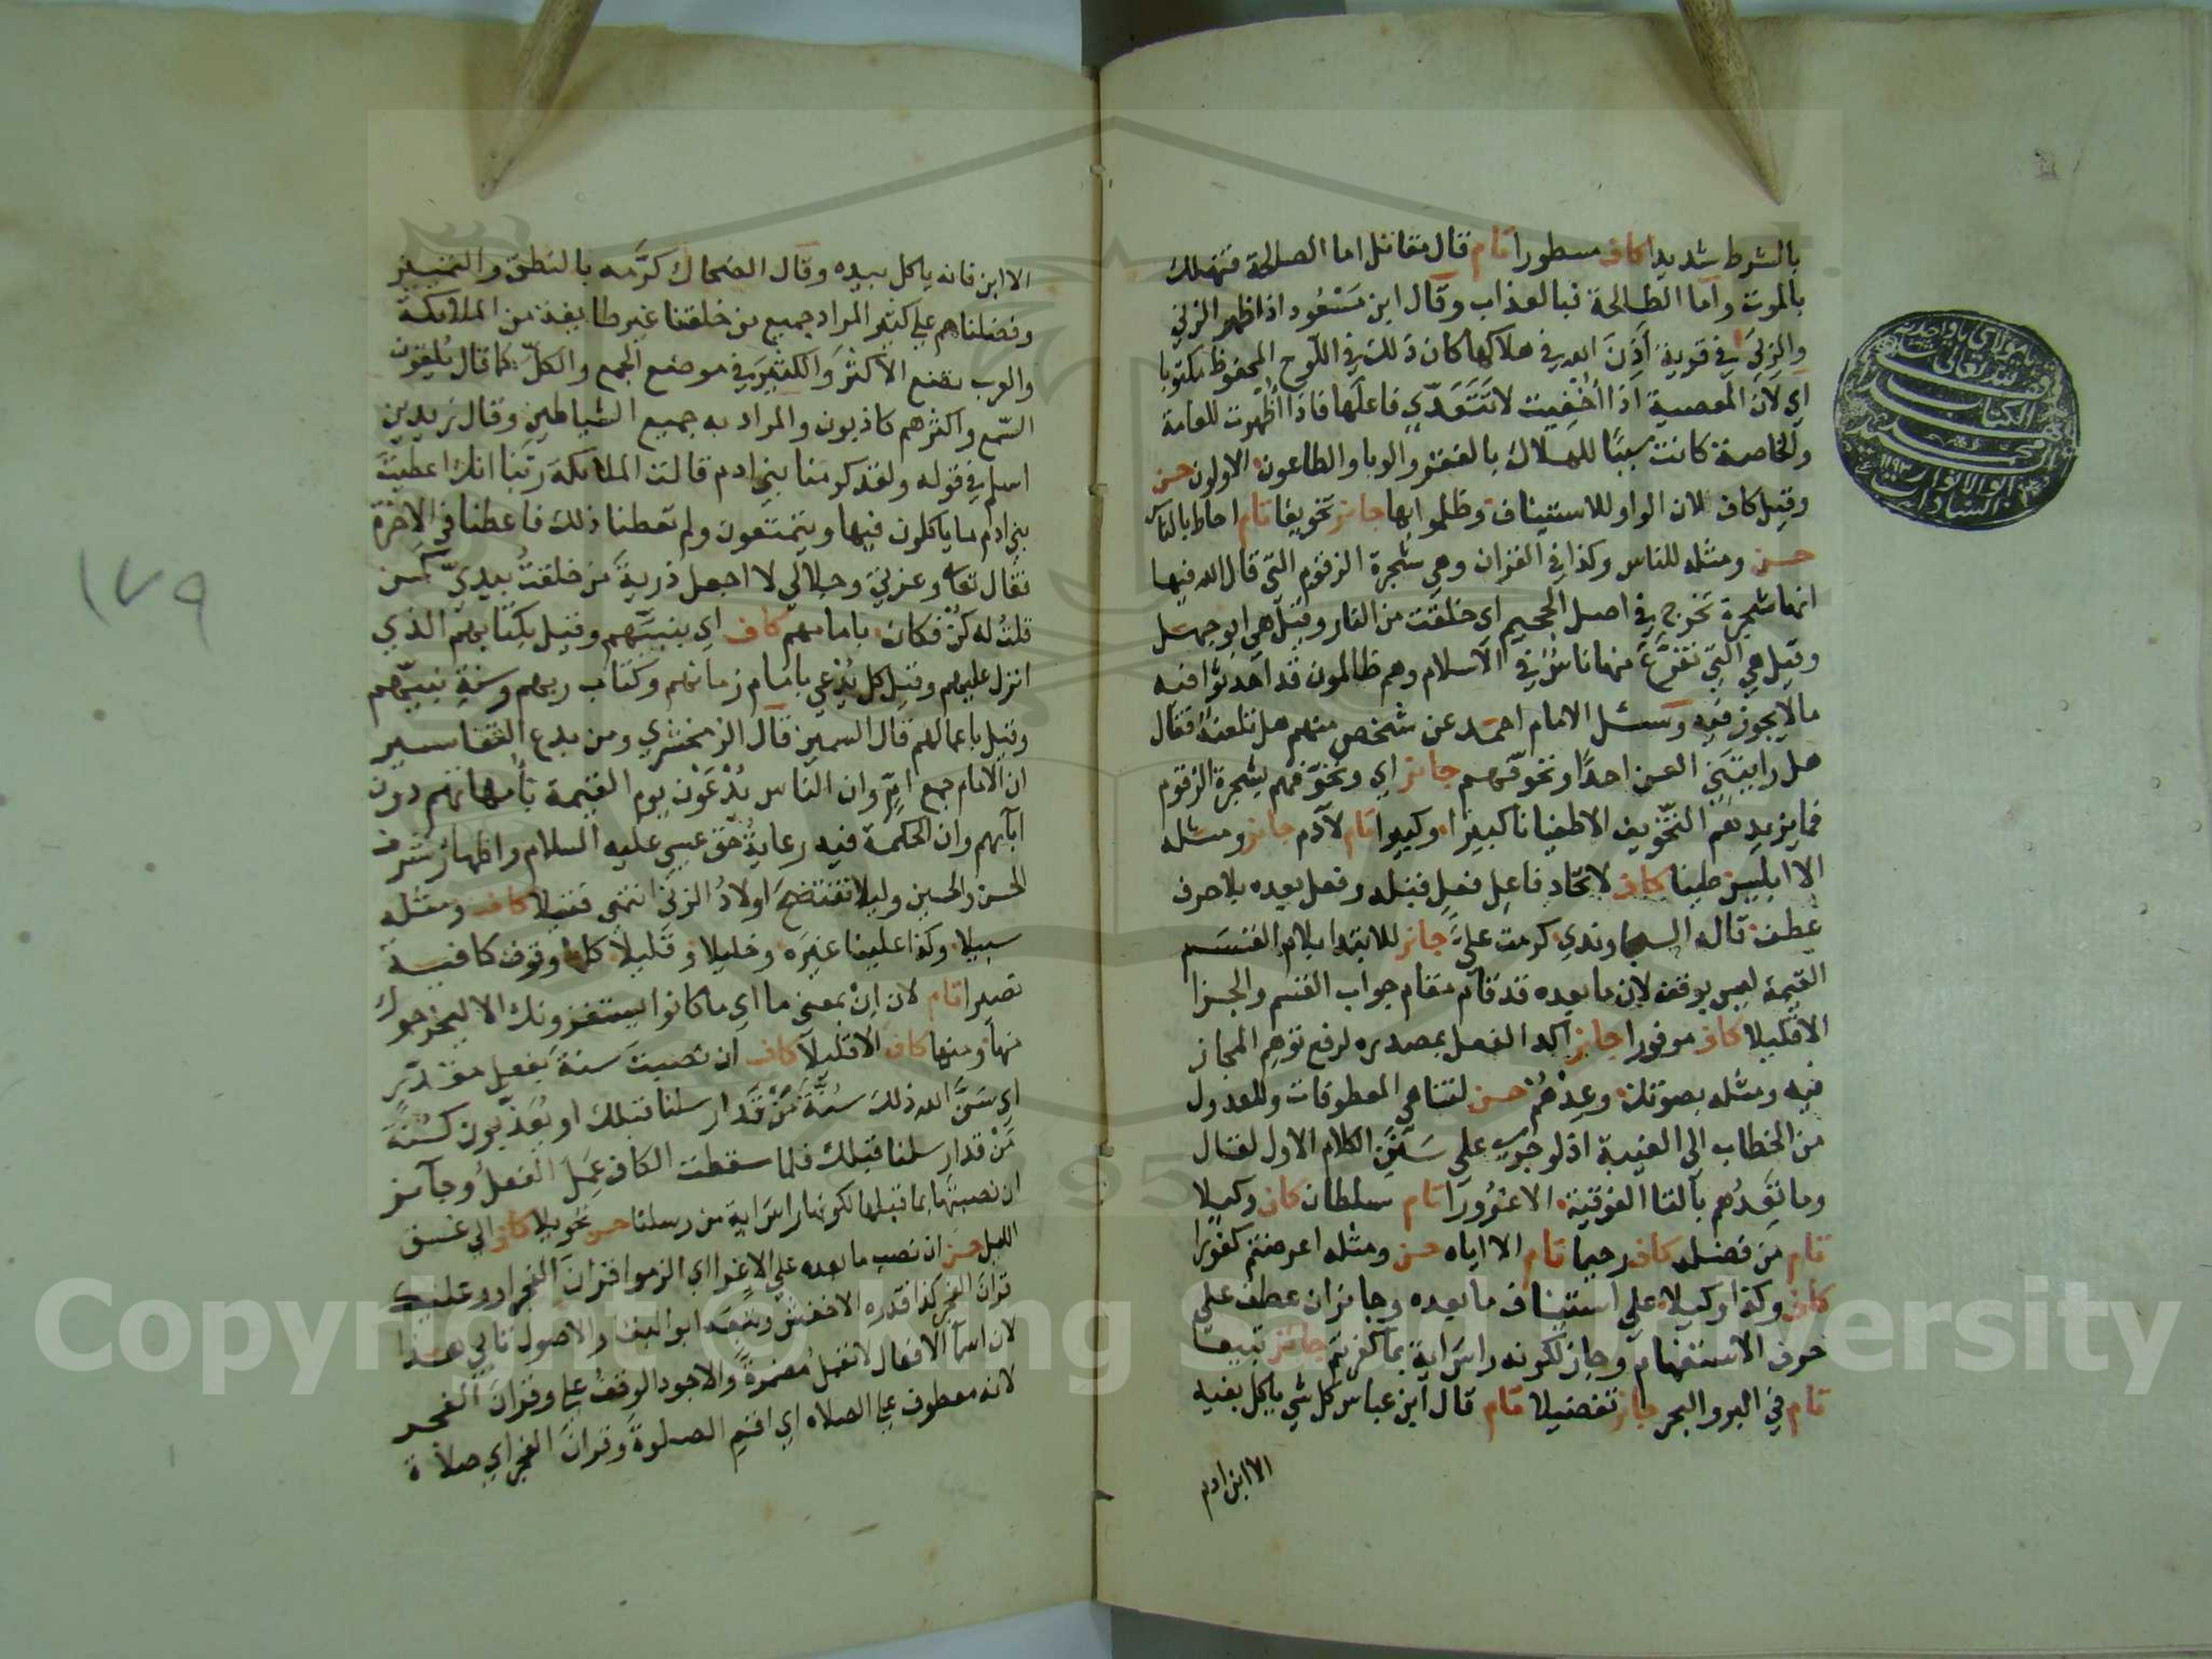 بالشرط شديدا كاف مسطورا تام قال مقاتل اما الصالحة فتهلك
بالموت واما الطالحة فبالعذاب وقال ابن مسعود اذا ظهر الزني
والربى في قرية أذن الله في هلاكها كان ذلك في اللوح المحفوظ مكتوبا
اي لان المعصية اذا أخفيت لا تتعدي فاعلها فاذا أظهرت للعامة
والخاصة كانت سببًا للهلاك بالفقر والوبا والطاعون الاولون حسن
وقيل كاف لان الواو للاستيناف فظلموا بها جائز تخويفا تام احاط بالناس
حسن ومثله للناس وكذا في القران وهي شجرة الزقوم التي قال الله فيها
انها شجرة تخرج في اصل الجحيم اي خلقت من النار وقيل هي ابو جهل
وقيل هي التي تفرع منها ناس في الاسلام وهم ظالمون قد احدثوا فيه
مالا يجوز فيه وسئل الامام احمد عن شخص منهم هل تلعنه فقال
هل رايتني العن احدًا ونخوفهم جائز اي ونخوفهم بشجرة الزقوم
فما يزيدهم التخويف الا طغيانا كبيرا وكبيرا تام لآدم جائز ومثله
الا ابليس طينا كاف لاتحاد فاعل فعل قبله وفعل بعده بلا حرف
عطف قاله السجاوندي كرمت عليّ جائز للابتدا بلام القسم
القيمة ليس بوقف لان ما بعده قد قام مقام جواب القسم والجزا
الا قليلا كاف موفورا جائز اكد الفعل بمصدره لرفع توهم المجاز
فيه ومثله بصوتك وعدهم حسن لتناهي المعطوفات وللعدول
من الخطاب الى الغيبة اذ لو جري على سنن الكلام الاول لقال
وما تعدهم بالتا الفوقية الا غرورا تام سلطان كاف وكيلا
تام من فضله كاف رحيما تام الا اياه حسن ومثله اعرضتم كفورا
كاف وكذا وكيلا علي استيناف ما بعده وجائز ان عطف علي
حرف الاستفهام وجاز لكونه راس اية بما كفرتم جائز تبيعا
تام في البر والبحر جائز تفضيلا تام قال ابن عباس كل شي ياكل بفيه
الا ابن ادم
الا ابن فانه ياكل بيده وقال الضحاك كرّمه بالنطق والتمييز
وفضلناهم علي كثير المراد جميع من خلقنا غير طايفة من الملائكة
والعرب تضع الاكثر والكثير في موضع الجمع والكل كما قال يلقون
السمع واكثرهم كاذبون والمراد به جميع الشياطين وقال زيد بن
اسلم في قوله ولقد كرمنا بني ادم قالت الملائكة ربنا انك اعطيت
بني ادم ما ياكلون فيها ويتمتعون ولم تعطنا ذلك فاعطنا في الاخرة
فقال تعا وعزتي وجلالي لا اجعل ذرية من خلقت بيديّ كمن
قلت له كن فكان بامامهم كاف اي بنبيهم وقيل بكتابهم الذي
انزل عليهم وقيل كل يدعي بامام زمانهم وكتاب ربهم وسنة نبيهم
وقيل باعمالهم قال السمين قال الزمخشري ومن بدع التفاسير
ان الامام جمع امّ وان الناس يدعون يوم القيمة بأمهاتهم دون
ابآيهم وان الحكمة فيه رعاية حق عيسي عليه السلام واظهار شرف
الحسن والحسين وليلا تفتضح اولاد الزني انتهي فتيلا كاف ومثله
سبيلا وكذا علينا غيره وخليلا وقليلا كلها وقوف كافية
نصيرا تام لان ان بمعني ما اي ما كانوا ليستفزونك الا ليخرجوك
منها ومنها كاف الا قليلا كاف ان نصبت سنة بفعل مقدر
اي سنّ الله ذلك سنة من قد ارسلنا قبلك او يعذبون كسنة
من قد ارسلنا قبلك فلما سقطت الكاف عمل الفعل وجآئز
ان نصبتها بما قبلها لكونها راس اية من رسلنا حسن تحويلا كاف الي غسق
الليل حسن ان نصب ما بعده علي الاغرا اي الزموا قران الفجر او وعليك
قران الفجر كذا قدره الاخفش وتبعه ابو البقا والاصول تابي هذا
لان اسما الافعال لا تعمل مضمرة والاجود الوقف علي وقران الفجر
لانه معطوف علي الصلاه اي اقم الصلوة وقران الفجر اي صلاة
١٧٩
Copyright © King Saud University
1957